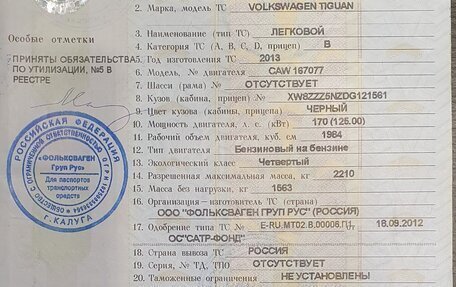 2. Марка, модель ТС VOLKSWAGEN TIGUAN
Особые отметки
3. Наименование (тип ТС) ЛЕГКОВОЙ
4. Категория ТС (А, В, С, D, прицеп) B
ПРИНЯТЫ ОБЯЗАТЕЛЬСТВА
ПО УТИЛИЗАЦИИ, №5 В
РЕЕСТРЕ
5. Год изготовления ТС 2013
6. Модель, № двигателя CAW 167077
7. Шасси (рама) № ОТСУТСТВУЕТ
8. Кузов (кабина, прицеп) № XW8ZZZ5NZDG121561
9. Цвет кузова (кабины, прицепа) ЧЕРНЫЙ
10. Мощность двигателя, л. с. (кВт) 170 (125.00)
11. Рабочий объем двигателя, куб. см 1984
12. Тип двигателя Бензиновый на бензине
13. Экологический класс Четвертый
14. Разрешенная максимальная масса, кг 2210
15. Масса без нагрузки, кг 1563
16. Организация—изготовитель ТС (страна)
ООО "ФОЛЬКСВАГЕН ГРУП РУС" (РОССИЯ)
17. Одобрение типа ТС № E-RU.MT02.B.00006.П1 18.09.2012
ОС"САТР-ФОНД"
18. Страна вывоза ТС РОССИЯ
19. Серия, № ТД, ТПО ОТСУТСТВУЕТ
20. Таможенные ограничения НЕ УСТАНОВЛЕНЫ
РОССИЙСКАЯ ФЕДЕРАЦИЯ
ОБЩЕСТВО С ОГРАНИЧЕННОЙ ОТВЕТСТВЕННОСТЬЮ
«ФОЛЬКСВАГЕН
Груп Рус»
Для паспортов
транспортных
средств
г. КАЛУГА